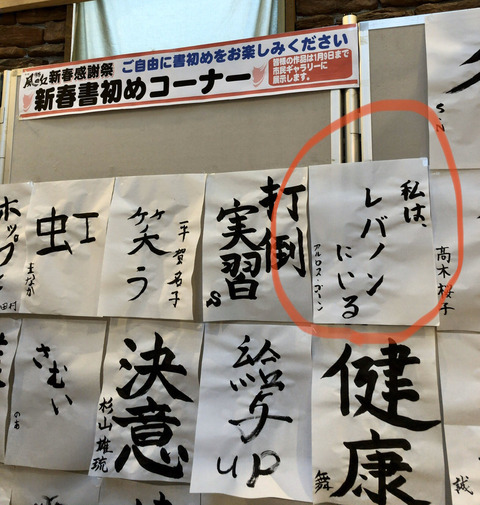 新春感謝祭
ご自由に書初めをお楽しみください
新春書初めコーナー
皆様の作品は1月9日まで
市民ギャラリーに
展示します。
S.N
高木桜子
私は、
レバノン
にいる
カルロス・ゴーン
打倒
実習
S
笑う
虹
まなか
田村
健康
舞
給与
up
決意
杉山雄琉
さむい
のあ
誠